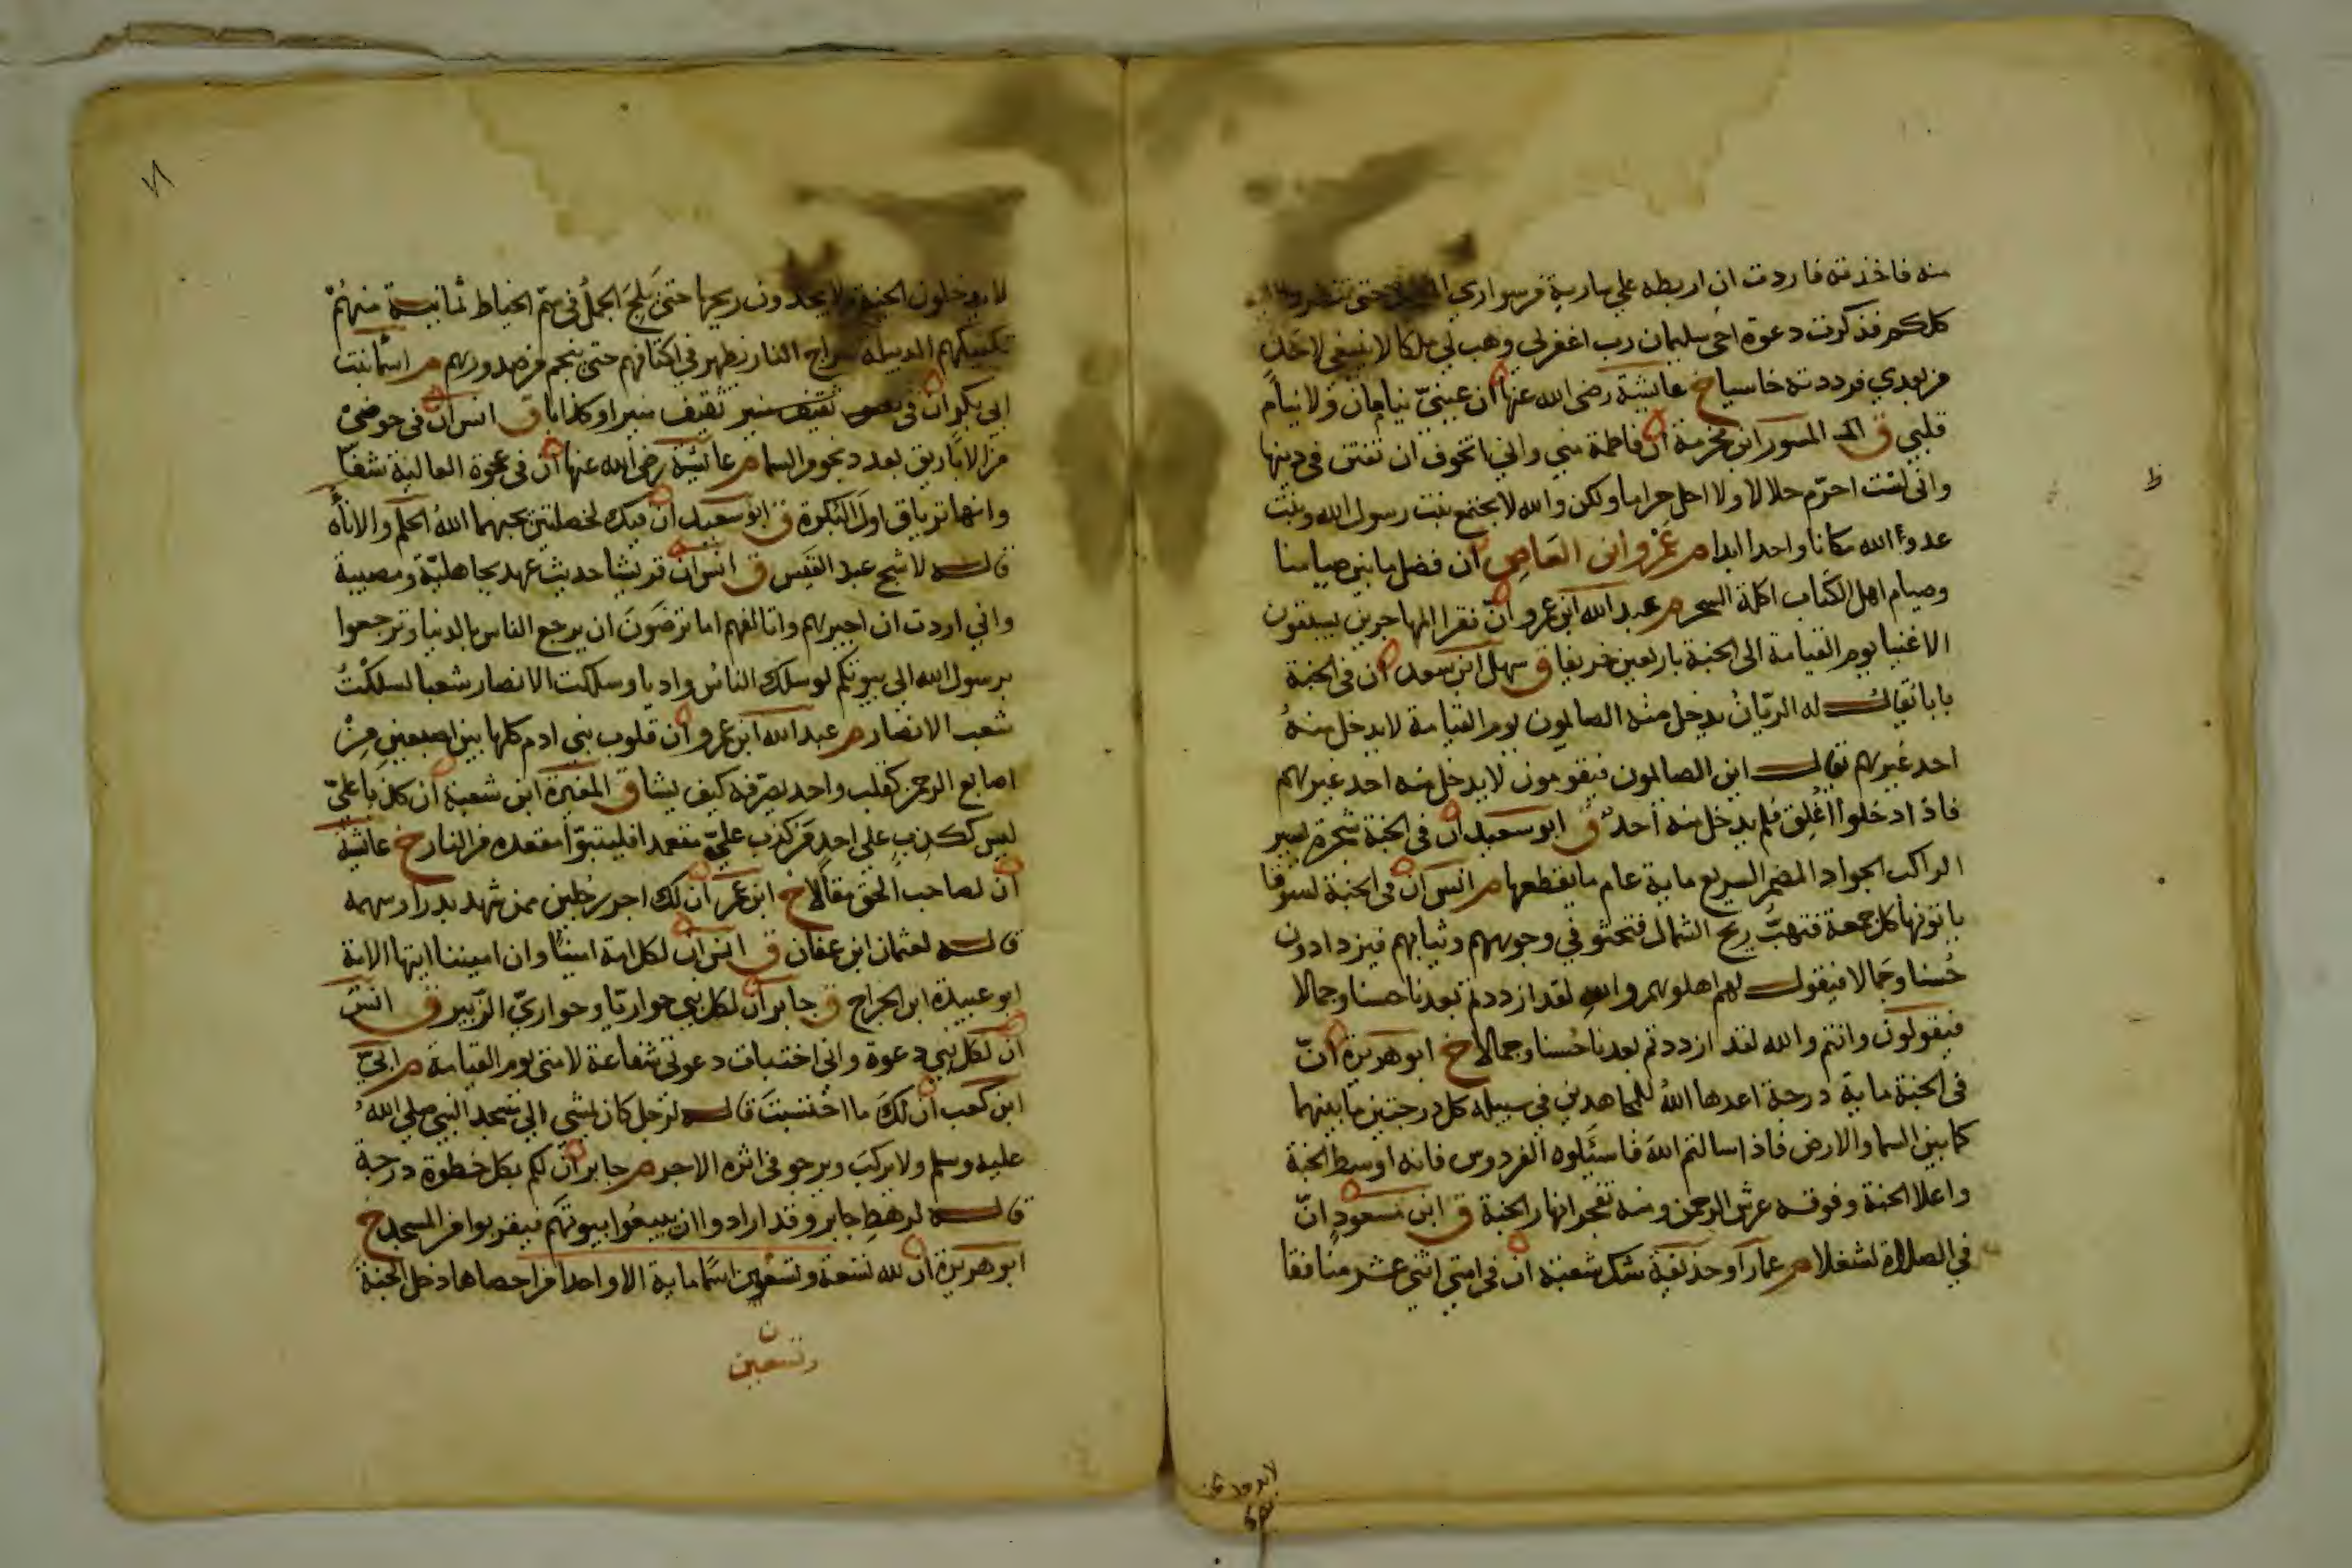 منه فاخذته فاردت ان اربطه علي سارية من سواري حتى تنظروا اليه
كلكم فذكرت دعوة اخي سليمان رب اغفرلي وهب لي ملكا لا ينبغي لاحدٍ
من بعدي فرددته خاسيا خ عائشة رضى الله عنها ان عينىّ تنامان ولا ينام
قلبي ق المـ المسور ابن مخرمة ان فاطمة مني واني اتخوف ان تفتن في دينها
واني لست احرّم حلالا ولا احل حراما ولكن والله لا يجتمع بنت رسول الله وبنت
عدوّ الله مكانا واحدا ابدا م عمرو ابن العاص ان فضل ما بين صيامنا
وصيام اهل الكتاب اكلة السحر م عبد الله ابن عمرو انّ فقرا المهاجرين يسبقون
الاغنيا يوم القيامة الى الجنة باربعين خريفا ق سهل ابن سعد ان في الجنة
بابا يقال له الريّان يدخل منه الصايمون يوم القيامة لا يدخل منهُ
احد غيرهم يقال اين الصايمون فيقومون لا يدخل منه احد غيرهم
فاذا دخلوا اُغلِق فلم يدخل منه احدٌ ق ابو سعيد ان في الجنة شجرة يسير
الراكب الجواد المضمر السريع ماية عام ما يقطعها م انس ان في الجنة لسوقا
ياتونها كل جمعة فتهبّ ريح الشمال فتحثو في وجوههم وثيابهم فيزدادون
حُسنا وجَمالا فيقول لهم اهلوهم والله لقد ازددتم بعدنا حسنا وجمالا
فيقولون وانتم والله لقد ازددتم بعدنا حُسنا وجمالا خ ابو هريرة انّ
في الجنة ماية درجة اعدها اللهُ للمجاهدين في سبيله كل درجتين ما بينهما
كما بين السما والارض فاذا سالتم اللهَ فاسئلوه الفردوس فانه اوسط الجنة
واعلا الجنة وفوقه عرش الرحمن ومنه تفجر انهار الجنة ق ابن مسعودٍ انّ
في الصلاة لشغلا م عمار او حذيفة شك شعبة ان في امتي اثني عشر منافقا
لا يدخلون
لا يدخلون الجنة ولا يجدون ريحها حتى يَلِجَ الجملُ في سَمّ الخياط ثمانية منهُمْ
تكفيكهم الدبيلة سراج النار يظهر في اكتافهم حتى ينجم من صدورهم م اسما بنت
ابي بكر ان في ثقيف مبير ثقيف مبيرا وكذابا ق انس ان في حوضيْ
من الاباريق بعدد نجوم السما م عائشة رضى الله عنها ان في عجوة العالية شفاً
وانها ترياق اول البُكرة ق ابو سعيد ان فيك لخصلتين يحبهما اللهُ الحلم والاناة
قاله لاشج عبد القيس ق انس ان قريشا حديث عهد بجاهليّة ومصيبة
واني اردت ان اجبرهم واتالفهم اما ترضَوَنَ ان يرجع الناس بالدنيا وترجعوا
برسول الله الى بيوتكم لو سلك الناس واديا وسلكت الانصار شعبا لسلكْتُ
شعب الانصار م عبد الله ابن عمرو ان قلوب بني ادم كلها بين اصبعين مِنْ
اصابع الرحمن كقلب واحد يصرّفه كيف يشا ق المغيرة ابن شعبة ان كذبا عليّ
ليس ككذبٍ على احدٍ فمن كذب عليّ متعمدا فليتبوّا مقعده من النار خ عائشة
ان لصاحب الحق مقالاً خ ابن عمر ان لك اجر رجلين ممن شهد بدرا وسهمه
قاله لعثمان ابن عفان ق انس ان لكل امة امينًا وان اميننا ايتها الامة
ابو عبيدة ابن الجراح ق جابر ان لكل نبي حواريّا وحواريّ الزبير ق انس
ان لكل نبي دعوة واني اختبات دعوتي شفاعة لامتي يوم القيامة م ابيّ
ابن كعب ان لكَ ما احْتسبتَ قاله لرجل كان يمشي الي مسجد النبي صلي اللهُ
عليه وسلم ولا يركب ويرجو في اثره الاجر م جابر ان لكم بكل خطوة درجة
قاله لرهط جابر وقد ارادوا ان يبيعُوا بيوتهم فيقربوا من المسجد خ
ابو هريرة ان لله تسعة وتسعون اسما ماية الا واحدا من احصاها دخل الجنة
ن
وتسعين